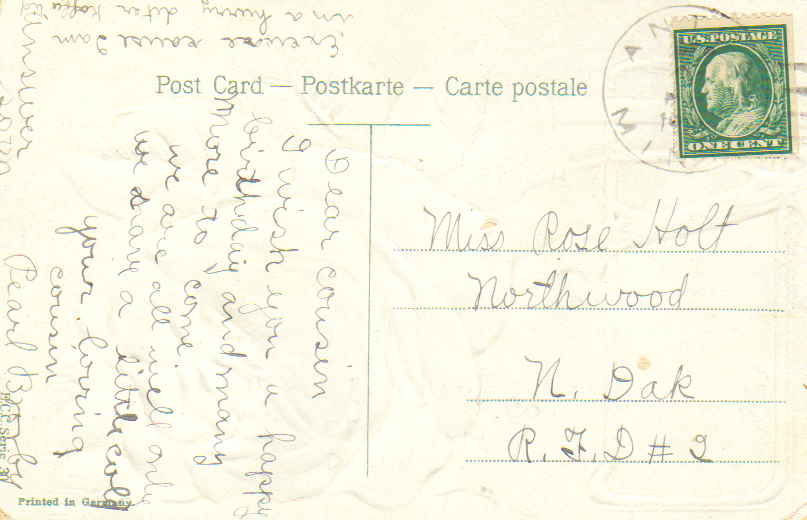 Post Card — Postkarte — Carte postale
U.S. POSTAGE
ONE CENT
Miss Rose Holt
Northwood
N. Dak
R. F. D # 2
Dear cousin
I wish you a happy
birthday and many
more to come
we are all well only
we have a little cold
your loving
cousin
Pearl
answer soon
Excuse cause I am
in a hurry
Printed in Germany.